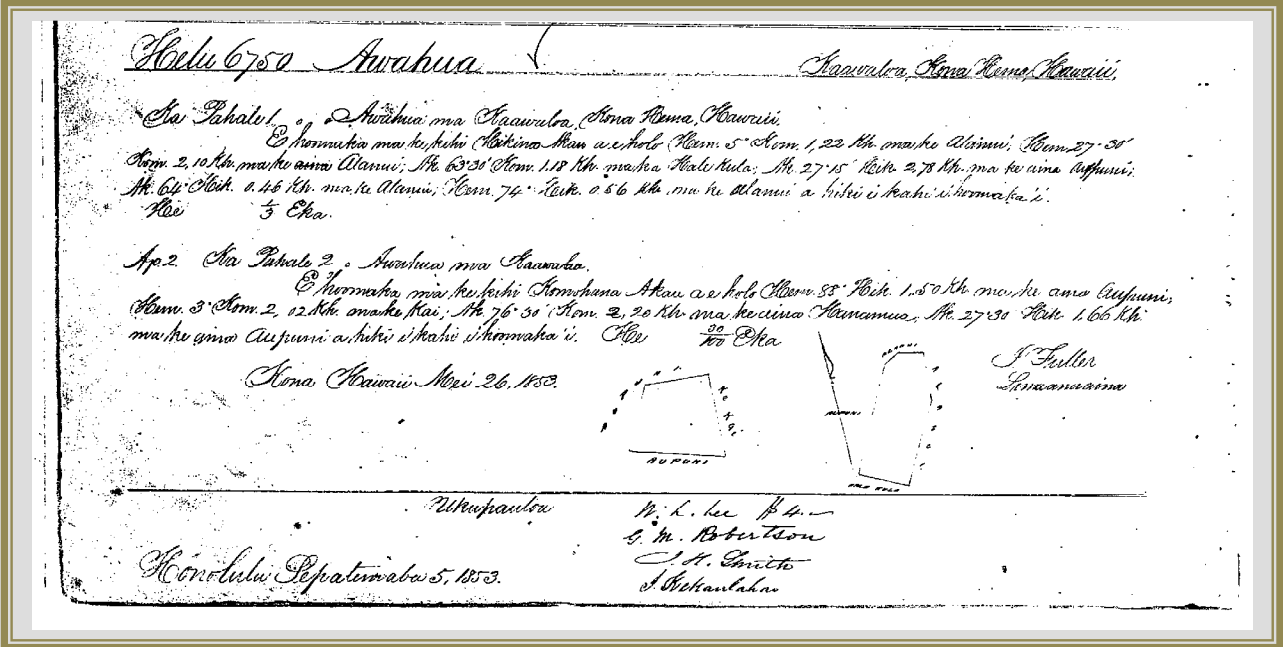 Helu 6750 Awahua Kaawaloa, Kona Hema, Hawaii.
Ka Pahale 1 Awahua ma Kaawaloa, Kona Hema, Hawaii.
E hoomaka ma ke kihi Hikina Akau a e holo Hem. 5° Kom. 1,22 Kh. ma ke Alanui; Hem. 27°30'
Kom. 2,10 Kh. ma ke aina Alanui; Ak. 63°30' Kom. 1.18 Kh. ma ka Hale kula; Ak. 27°15' Hik. 2,78 Kh. ma ke aina Aupuni;
Ak. 64° Hik. 0.46 Kh. ma ke Alanui; Hem. 74° Hik. 0.56 Kh. ma ke alanui a hiki i kahi i hoomaka'i.
He 1/3 Eka.
Ap. 2. Ka Pahale 2. Awahua ma Kaawaloa.
E hoomaka ma ke kihi Komohana Akau a e holo Hem. 88° Hik. 1.50 Kh. ma ke aina Aupuni;
Hem. 3° Kom. 2,02 Kh. ma ke Kai; Ak. 76°30' Kom. 2,20 Kh. ma ke aina Hanamua; Ak. 27°30' Hik. 1.66 Kh.
ma ke aina Aupuni a hiki i kahi i hoomaka'i. He 30/100 Eka
J. Fuller
Kona Hawaii Mei 26, 1853.
AUPUNI
AUPUNI
HALE KULA
Ukupauloa W. L. Lee $4.—
G. M. Robertson
J. H. Smith
Honolulu Sepatemaba 5, 1853.
J. Kekaulahao